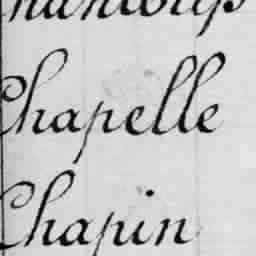 Chapelle
Chapin